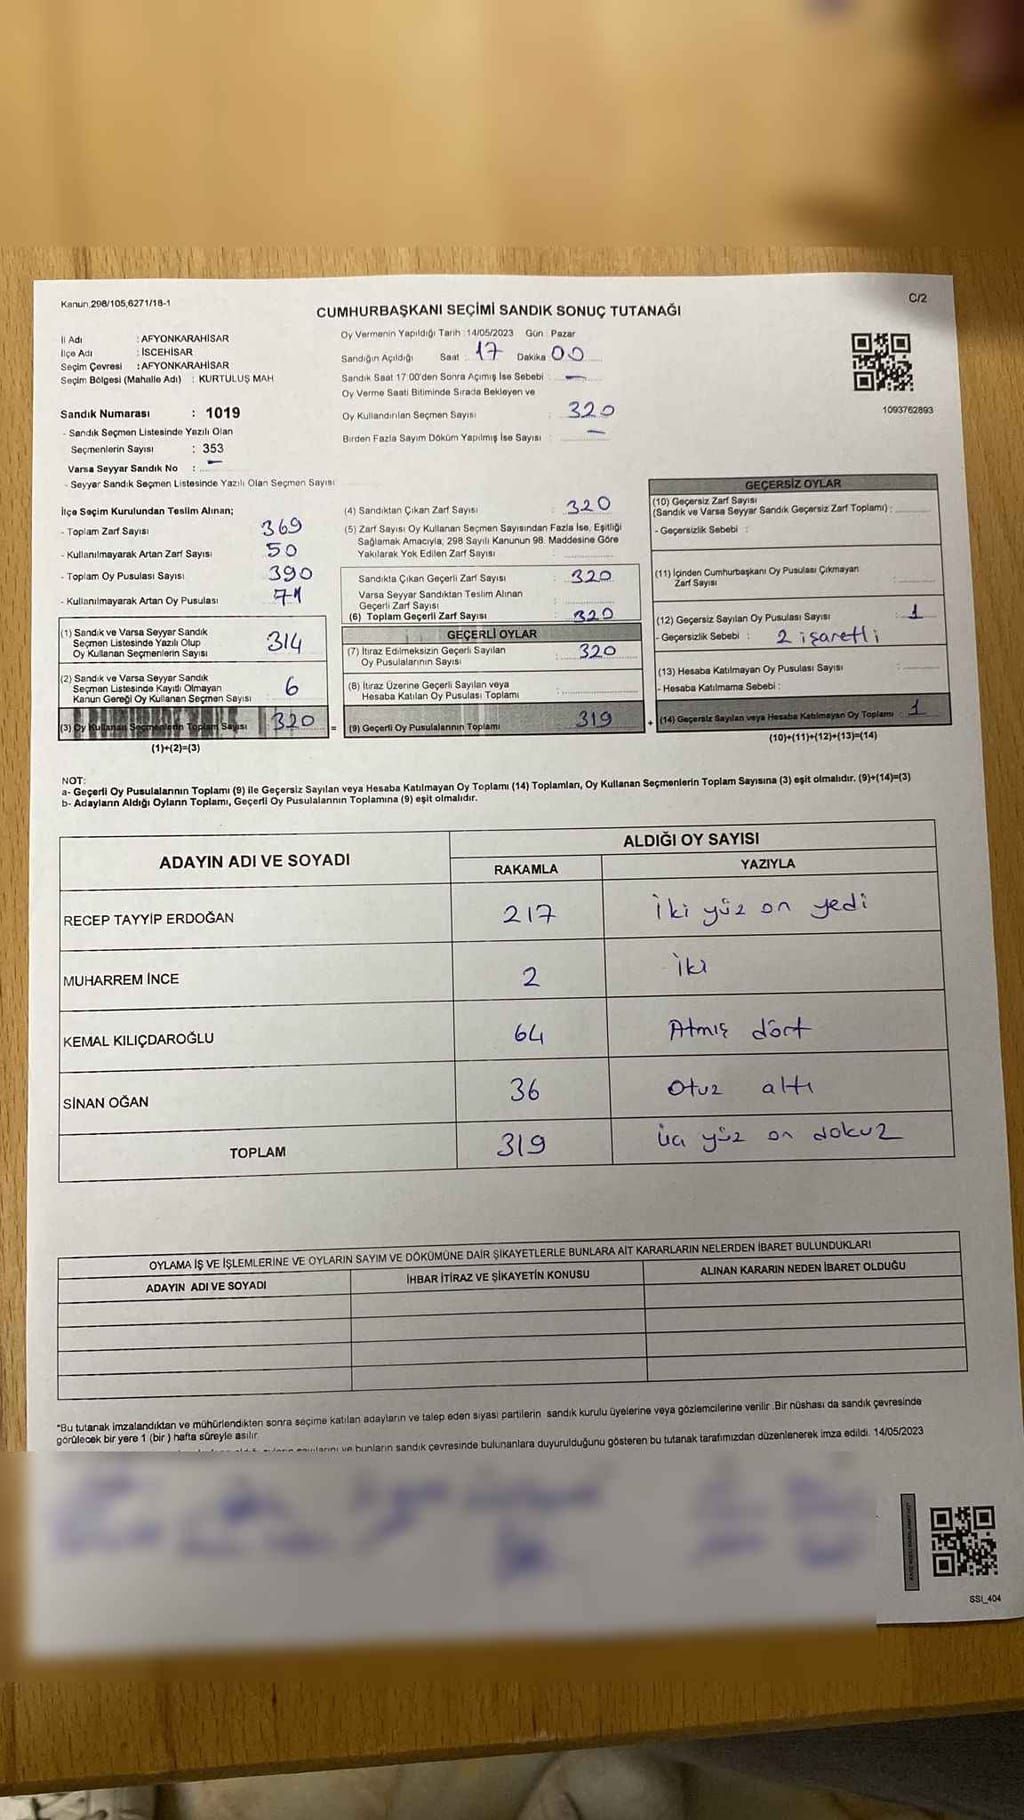 Kanun 298/105,6271/18-1
C/2
CUMHURBAŞKANI SEÇİMİ SANDIK SONUÇ TUTANAĞI
İl Adı : AFYONKARAHİSAR
İlçe Adı : İSCEHİSAR
Seçim Çevresi : AFYONKARAHİSAR
Seçim Bölgesi (Mahalle Adı) : KURTULUŞ MAH
Sandık Numarası : 1019
- Sandık Seçmen Listesinde Yazılı Olan
Seçmenlerin Sayısı : 353
Varsa Seyyar Sandık No : —
- Seyyar Sandık Seçmen Listesinde Yazılı Olan Seçmen Sayısı
Oy Vermenin Yapıldığı Tarih : 14/05/2023 Gün : Pazar
Sandığın Açıldığı Saat : 17 Dakika 00
Sandık Saat 17:00'den Sonra Açımış İse Sebebi : —
Oy Verme Saati Bitiminde Sırada Bekleyen ve
Oy Kullandırılan Seçmen Sayısı : 320
Birden Fazla Sayım Döküm Yapılmış İse Sayısı : —
1093762893
İlçe Seçim Kurulundan Teslim Alınan;
- Toplam Zarf Sayısı 369
- Kullanılmayarak Artan Zarf Sayısı 50
- Toplam Oy Pusulası Sayısı 390
- Kullanılmayarak Artan Oy Pusulası 71
(1) Sandık ve Varsa Seyyar Sandık
Seçmen Listesinde Yazılı Olup
Oy Kullanan Seçmenlerin Sayısı 314
(2) Sandık ve Varsa Seyyar Sandık
Seçmen Listesinde Kayıtlı Olmayan
Kanun Gereği Oy Kullanan Seçmen Sayısı 6
(3) Oy Kullanan Seçmenlerin Toplam Sayısı 320
(1)+(2)=(3)
(4) Sandıktan Çıkan Zarf Sayısı : 320
(5) Zarf Sayısı Oy Kullanan Seçmen Sayısından Fazla İse, Eşitliği
Sağlamak Amacıyla, 298 Sayılı Kanunun 98. Maddesine Göre
Yakılarak Yok Edilen Zarf Sayısı :
Sandıkta Çıkan Geçerli Zarf Sayısı : 320
Varsa Seyyar Sandıktan Teslim Alınan
Geçerli Zarf Sayısı :
(6) Toplam Geçerli Zarf Sayısı : 320
GEÇERLİ OYLAR
(7) İtiraz Edilmeksizin Geçerli Sayılan
Oy Pusulalarının Sayısı : 320
(8) İtiraz Üzerine Geçerli Sayılan veya
Hesaba Katılan Oy Pusulası Toplamı :
= (9) Geçerli Oy Pusulalarının Toplamı 319
GEÇERSİZ OYLAR
(10) Geçersiz Zarf Sayısı
(Sandık ve Varsa Seyyar Sandık Geçersiz Zarf Toplamı) :
- Geçersizlik Sebebi :
(11) İçinden Cumhurbaşkanı Oy Pusulası Çıkmayan
Zarf Sayısı :
(12) Geçersiz Sayılan Oy Pusulası Sayısı : 1
- Geçersizlik Sebebi : 2 işaretli
(13) Hesaba Katılmayan Oy Pusulası Sayısı
- Hesaba Katılmama Sebebi :
+ (14) Geçersiz Sayılan veya Hesaba Katılmayan Oy Toplamı 1
(10)+(11)+(12)+(13)=(14)
NOT:
a- Geçerli Oy Pusulalarının Toplamı (9) ile Geçersiz Sayılan veya Hesaba Katılmayan Oy Toplamı (14) Toplamları, Oy Kullanan Seçmenlerin Toplam Sayısına (3) eşit olmalıdır. (9)+(14)=(3)
b- Adayların Aldığı Oyların Toplamı, Geçerli Oy Pusulalarının Toplamına (9) eşit olmalıdır.
ADAYIN ADI VE SOYADI
ALDIĞI OY SAYISI
RAKAMLA YAZIYLA
RECEP TAYYİP ERDOĞAN 217 İki yüz on yedi
MUHARREM İNCE 2 İki
KEMAL KILIÇDAROĞLU 64 Atmış dört
SİNAN OĞAN 36 Otuz altı
TOPLAM 319 üç yüz on dokuz
OYLAMA İŞ VE İŞLEMLERİNE VE OYLARIN SAYIM VE DÖKÜMÜNE DAİR ŞİKAYETLERLE BUNLARA AİT KARARLARIN NELERDEN İBARET BULUNDUKLARI
ADAYIN ADI VE SOYADI İHBAR İTİRAZ VE ŞİKAYETİN KONUSU ALINAN KARARIN NEDEN İBARET OLDUĞU
*Bu tutanak imzalandıktan ve mühürlendikten sonra seçime katılan adayların ve talep eden siyasi partilerin sandık kurulu üyelerine veya gözlemcilerine verilir .Bir nüshası da sandık çevresinde
görülecek bir yere 1 (bir ) hafta süreyle asılır
ve bunların sandık çevresinde bulunanlara duyurulduğunu gösteren bu tutanak tarafımızdan düzenlenerek imza edildi. 14/05/2023
SSI_404